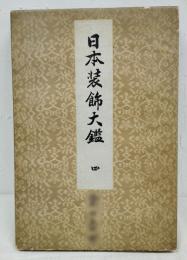 日本装飾大鑑 四